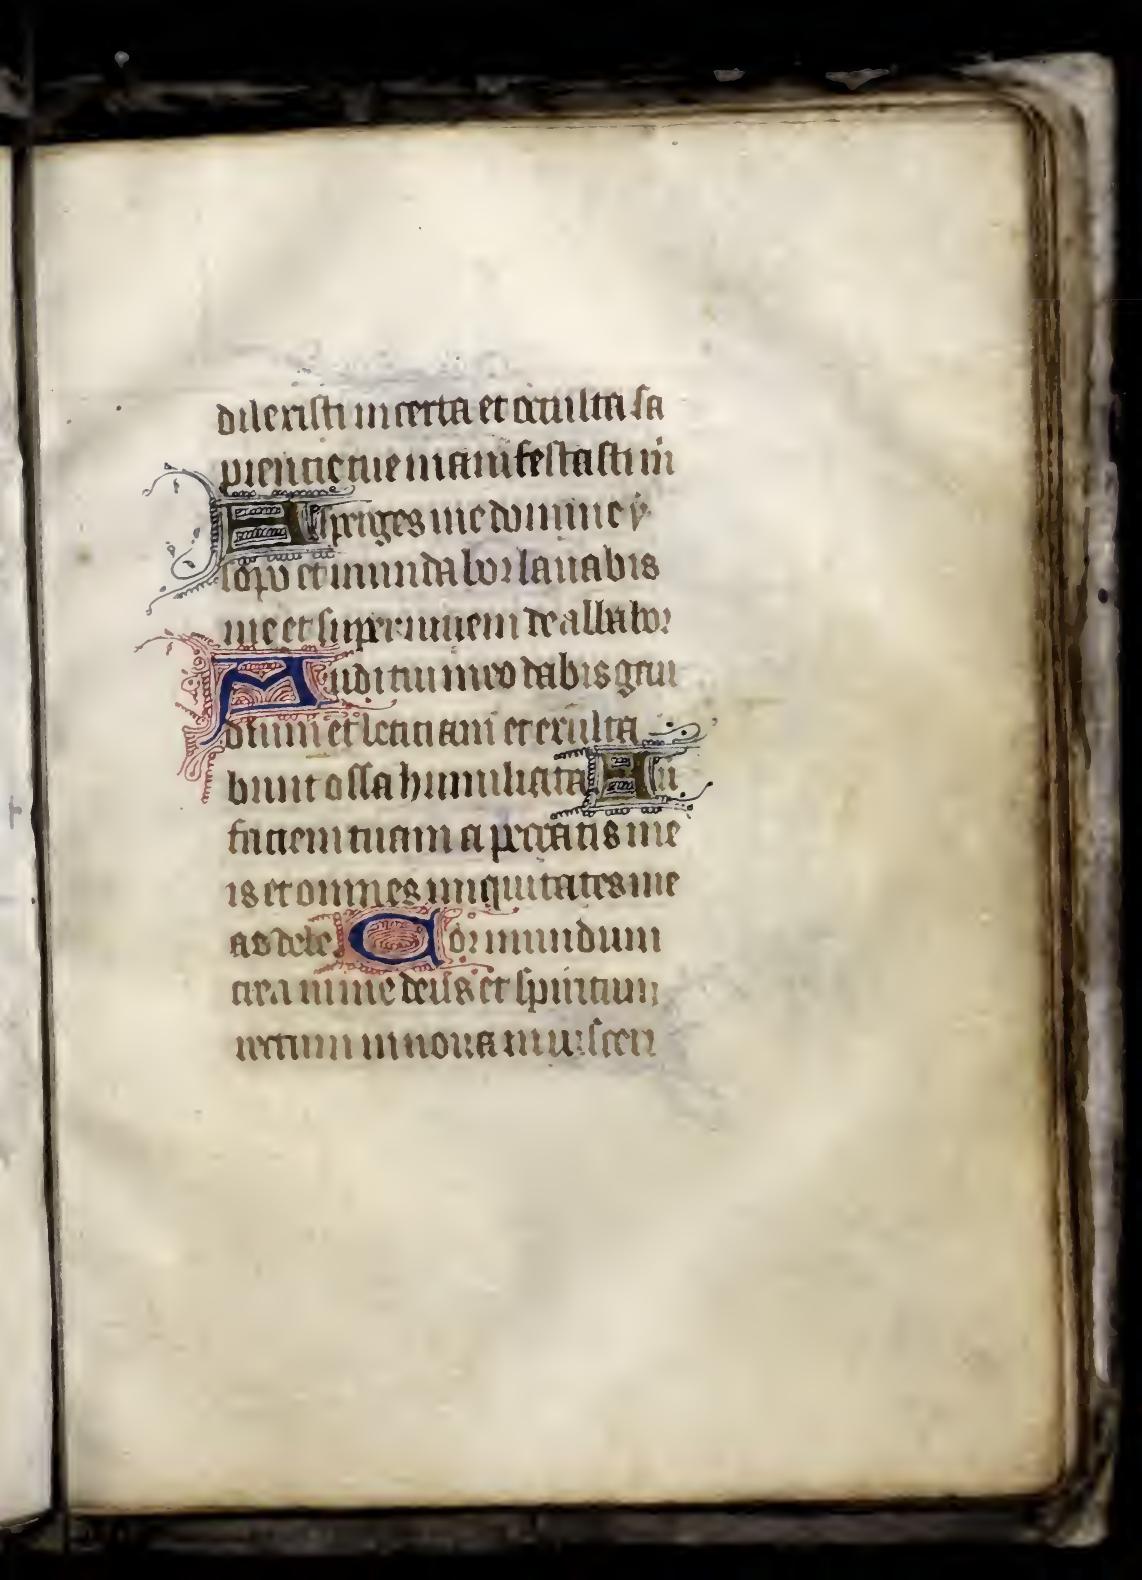 dilexisti incerta et occulta sa
pientie tue manifestasti m̄
Asperges me domine y
sopo et mundabor lauabis
me et super niuem dealbabor
Auditui meo dabis gau
dium et leticiam et exulta
bunt ossa humiliata Au
faciem tuam a peccatis me
is et omnes iniquitates me
as dele Cor mundum
crea in me deus et spiritum
rectum innoua in uisceri